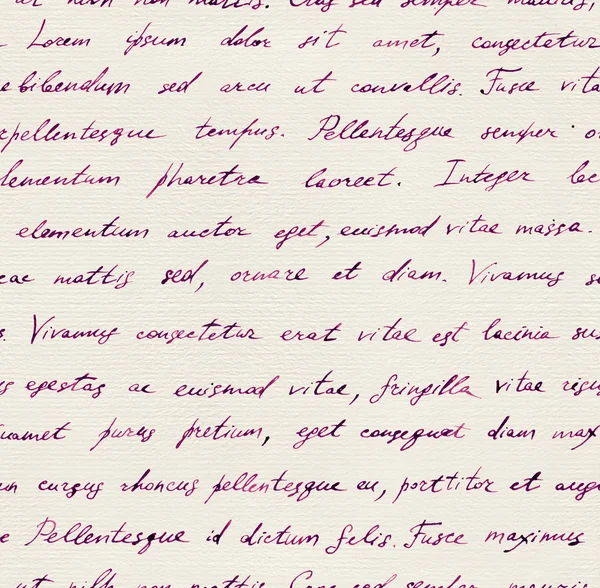 non mattis. Cras sed semper mauris,
Lorem ipsum dolor sit amet, consectetur
bibendum sed arcu ut convallis. Fusce vita
pellentesque tempus. Pellentesque semper
lementum pharetra laoreet. Integer
elementum auctor eget, euismod vitae massa.
mattis sed, ornare et diam. Vivamus
Vivamus consectetur erat vitae est lacinia
egestas ac euismod vitae, fringilla vitae risu
amet purus pretium, eget consequat diam max
cursus rhoncus pellentesque eu, porttitor et
Pellentesque id dictum felis. Fusce maximus